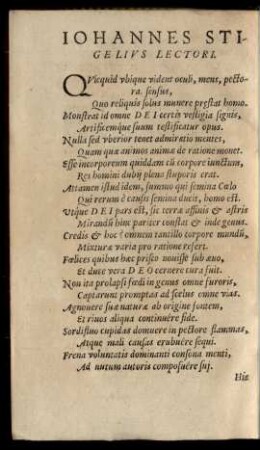 IOHANNES STI-
GELIVS LECTORI.
QVicquid vbique vident oculi, mens, pecto-
ra sensus,
Quo reliquis solus munere præstat homo.
Monstrat id omne DEI certis vestigia signis,
Artificemque suum testificatur opus.
Nulla sed vberior tenet admiratio mentes,
Quam quæ animos animæ de ratione monet.
Esse incorporeum quiddam cū corpore iunctum,
Res homini dubij plena stuporis erat.
Attamen istud idem, summo qui semina Cælo
Qui rerum è causis semina ducit, homo est.
Vtque DEI pars est, sic terræ affinis & astris
Mirandū hinc pariter constat & inde genus.
Credis & hoc? omnem tantillo corpore mundū,
Mixturæ varia pro ratione refert.
Fœlices quibus hæc prisco nouisse sub æuo,
Et duce vera DEO cernere cura fuit.
Non ita prolapsi fœdi in genus omne furoris,
Captarunt promptas ad scelus omne vias.
Agnouere suæ naturæ ab origine fontem,
Et riuos aliqua continuêre fide.
Sordisluo cupidas domuere in pectore flammas,
Atque mali causas erubuêre sequi.
Frena voluntatis dominanti consona menti,
Ad nutum autoris composuêre sui.
Hic